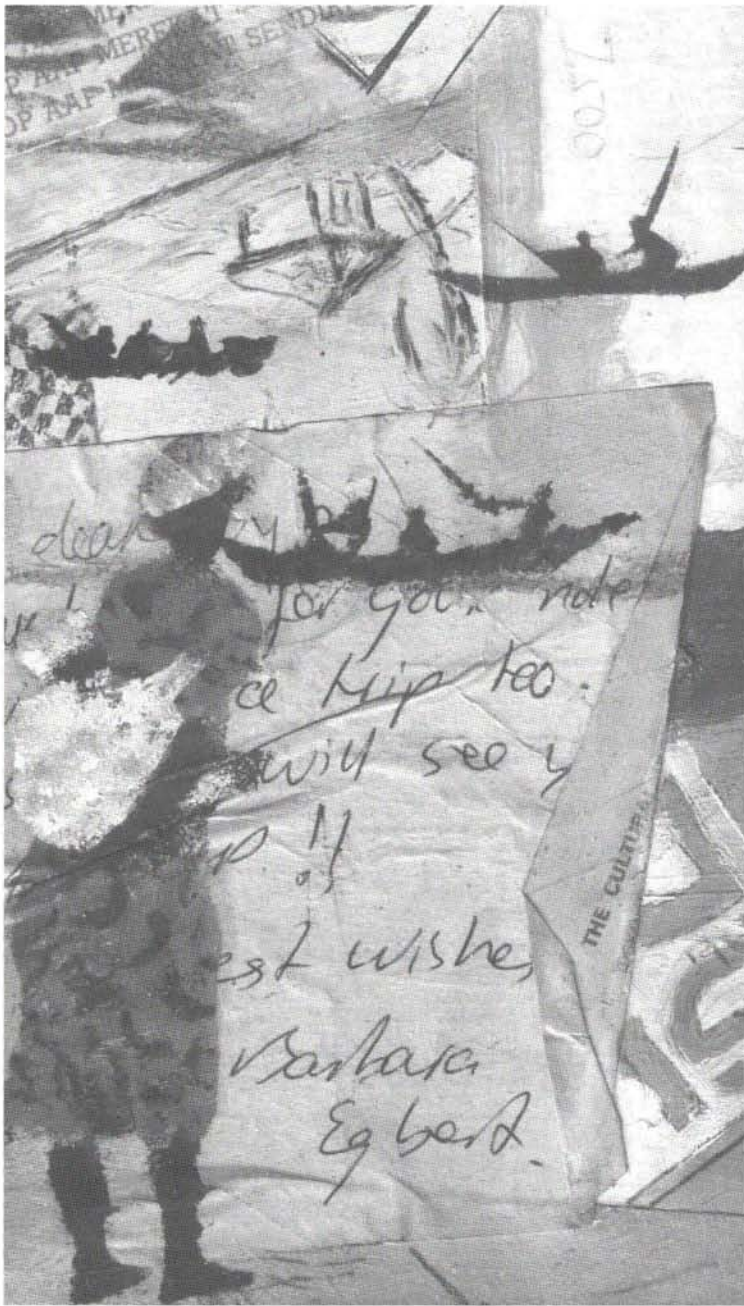 OP AAP MEREKAT
OP AAP SENDIA
0027
dear
for your note
ce trip too.
will see y
p !!
est wishes
Barbara
Egbert.
THE CULTURA